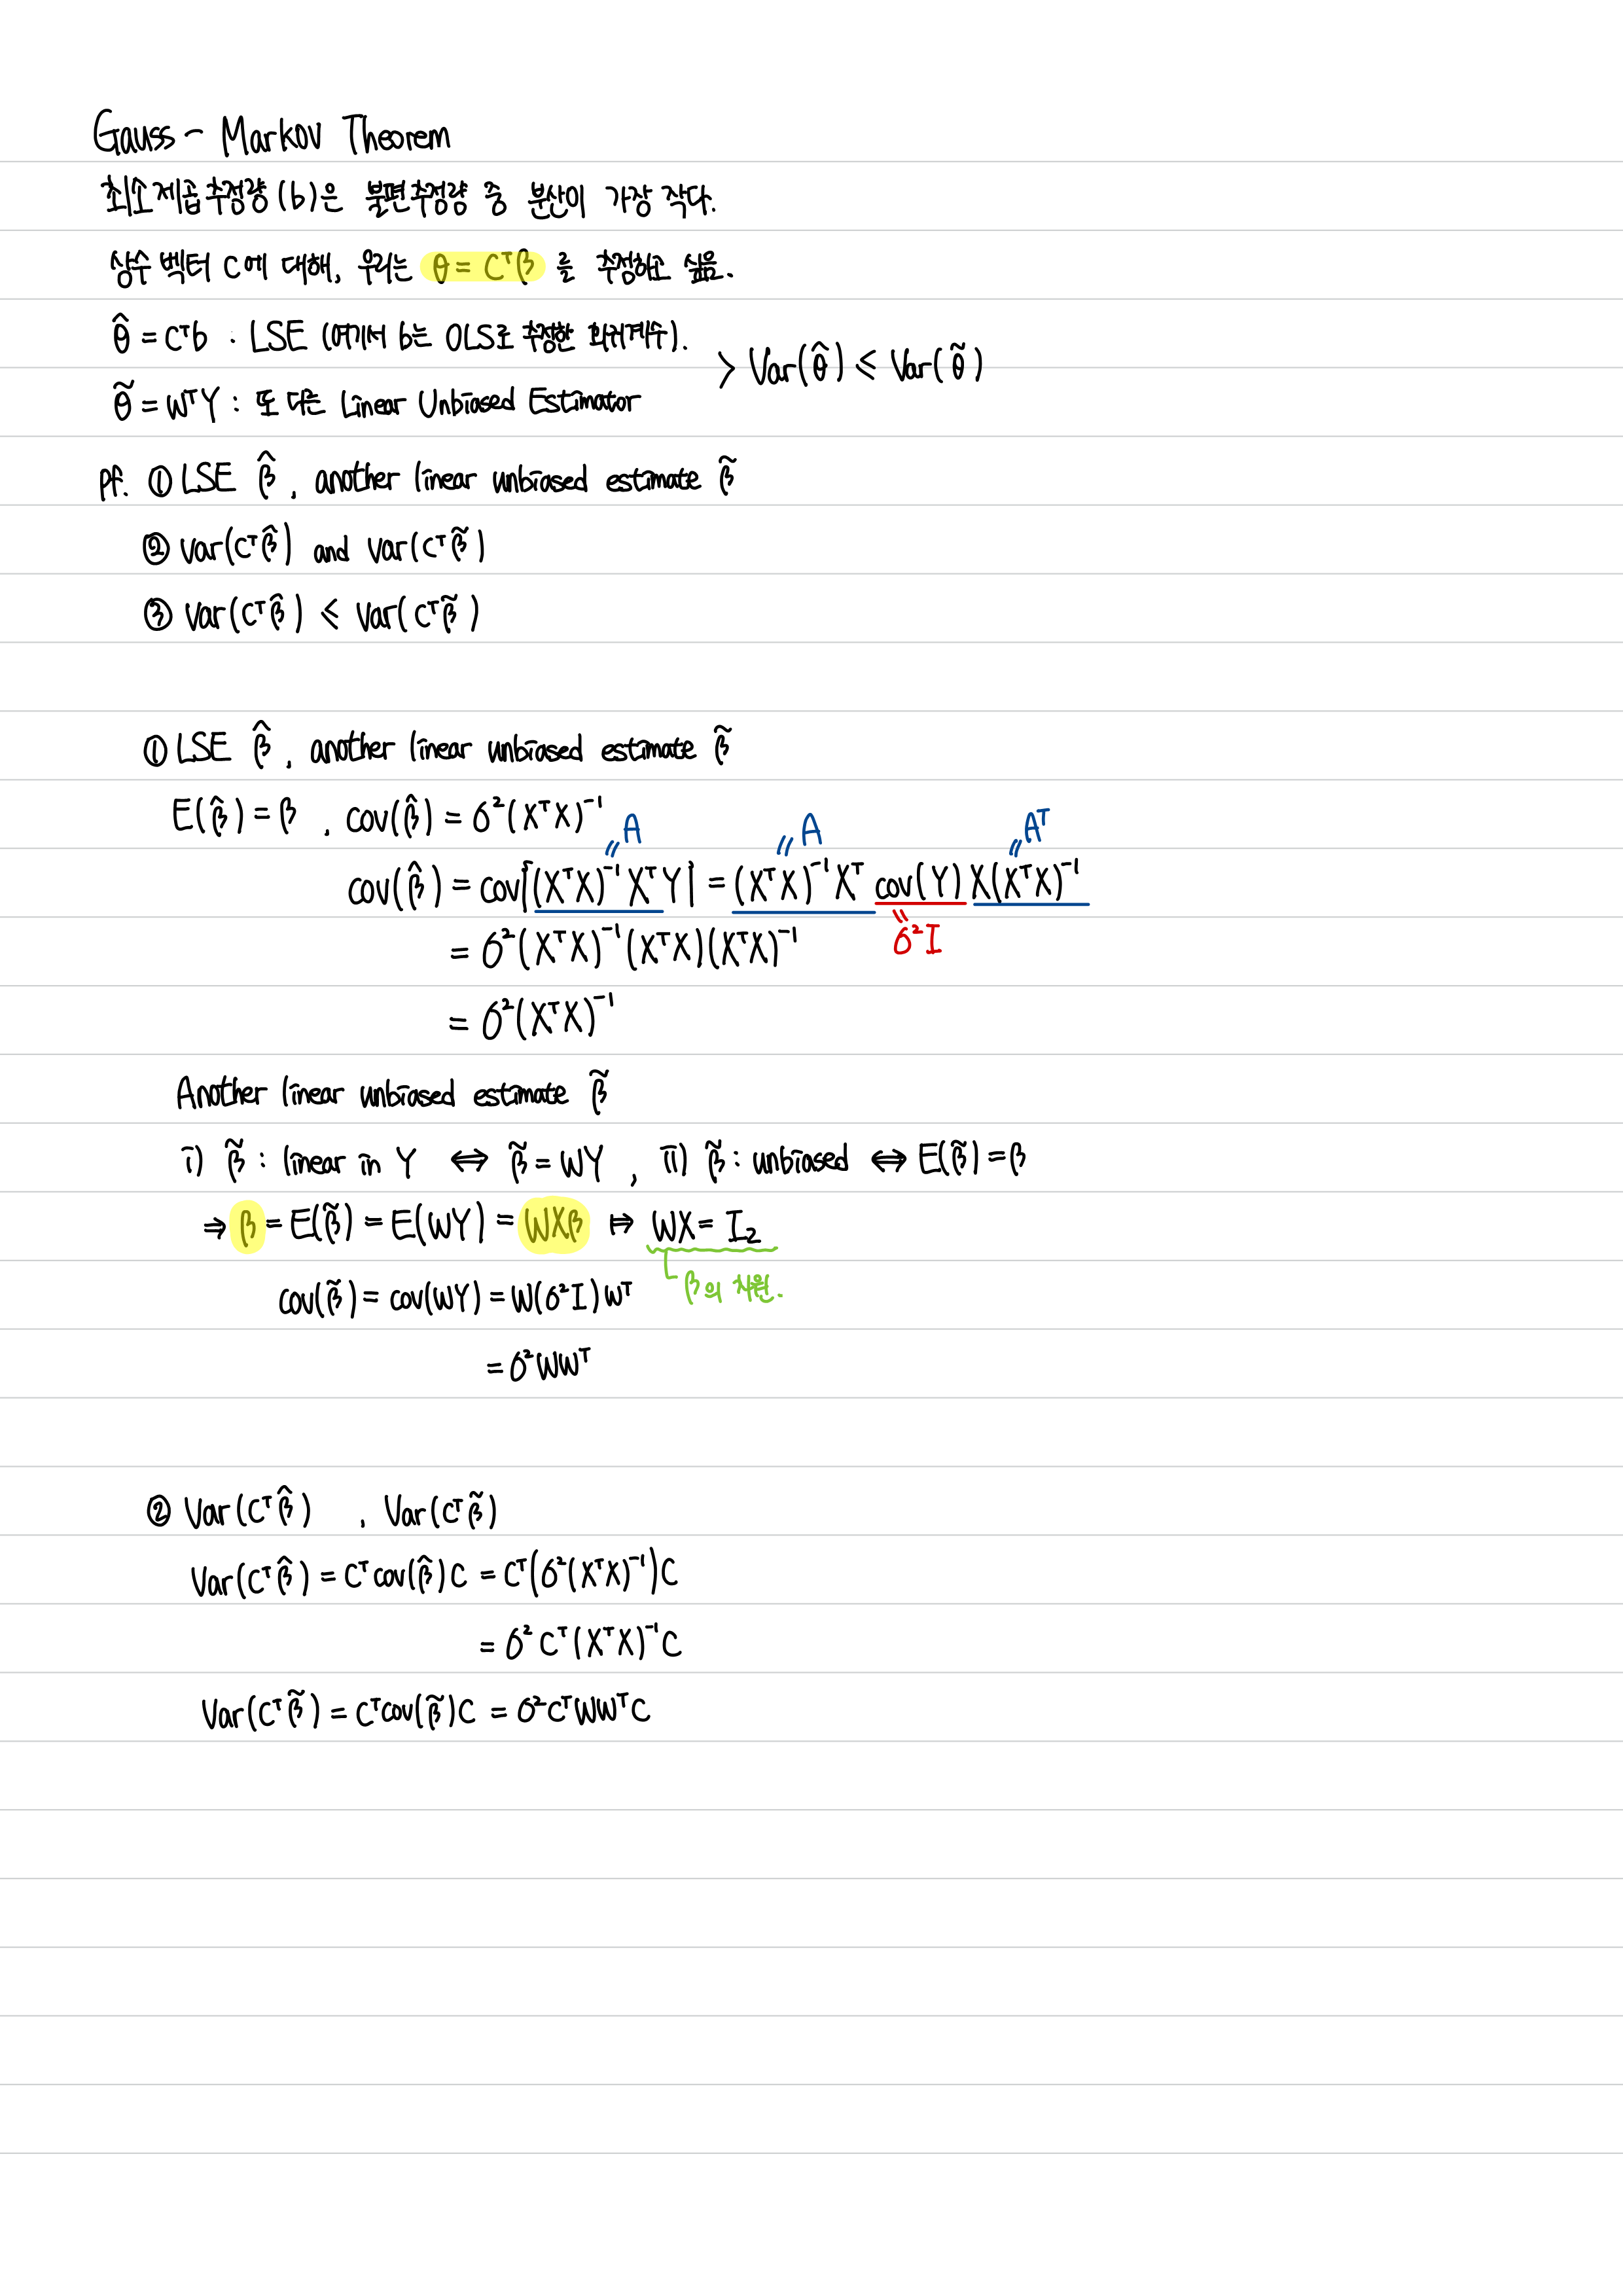 Gauss - Markov Theorem
최소제곱추정량(b)은 불편추정량 중 분산이 가장 작다.
상수 벡터 C에 대해, 우리는 θ = Cᵀβ 를 추정하고 싶음.
θ̂ = Cᵀb : LSE (여기서 b는 OLS로 추정한 회귀계수).
> Var(θ̂) ≤ Var(θ̃)
θ̃ = WᵀY : 또 다른 Linear Unbiased Estimator
pf. ① LSE β̂, another linear unbiased estimate β̃
② Var(Cᵀβ̂) and Var(Cᵀβ̃)
③ Var(Cᵀβ̂) ≤ Var(Cᵀβ̃)
① LSE β̂, another linear unbiased estimate β̃
E(β̂) = β , cov(β̂) = σ²(XᵀX)⁻¹
= A = A = Aᵀ
cov(β̂) = cov{(XᵀX)⁻¹XᵀY} = (XᵀX)⁻¹Xᵀ cov(Y) X(XᵀX)⁻¹
= σ²I
= σ²(XᵀX)⁻¹(XᵀX)(XᵀX)⁻¹
= σ²(XᵀX)⁻¹
Another linear unbiased estimate β̃
i) β̃ : linear in Y ⟺ β̃ = WY , ii) β̃ : unbiased ⟺ E(β̃) = β
⇒ β = E(β̃) = E(WY) = WXβ ⇒ WX = I₂
β의 차원.
cov(β̃) = cov(WY) = W(σ²I)Wᵀ
= σ²WWᵀ
② Var(Cᵀβ̂) , Var(Cᵀβ̃)
Var(Cᵀβ̂) = Cᵀcov(β̂)C = Cᵀ(σ²(XᵀX)⁻¹)C
= σ²Cᵀ(XᵀX)⁻¹C
Var(Cᵀβ̃) = Cᵀcov(β̃)C = σ²CᵀWWᵀC